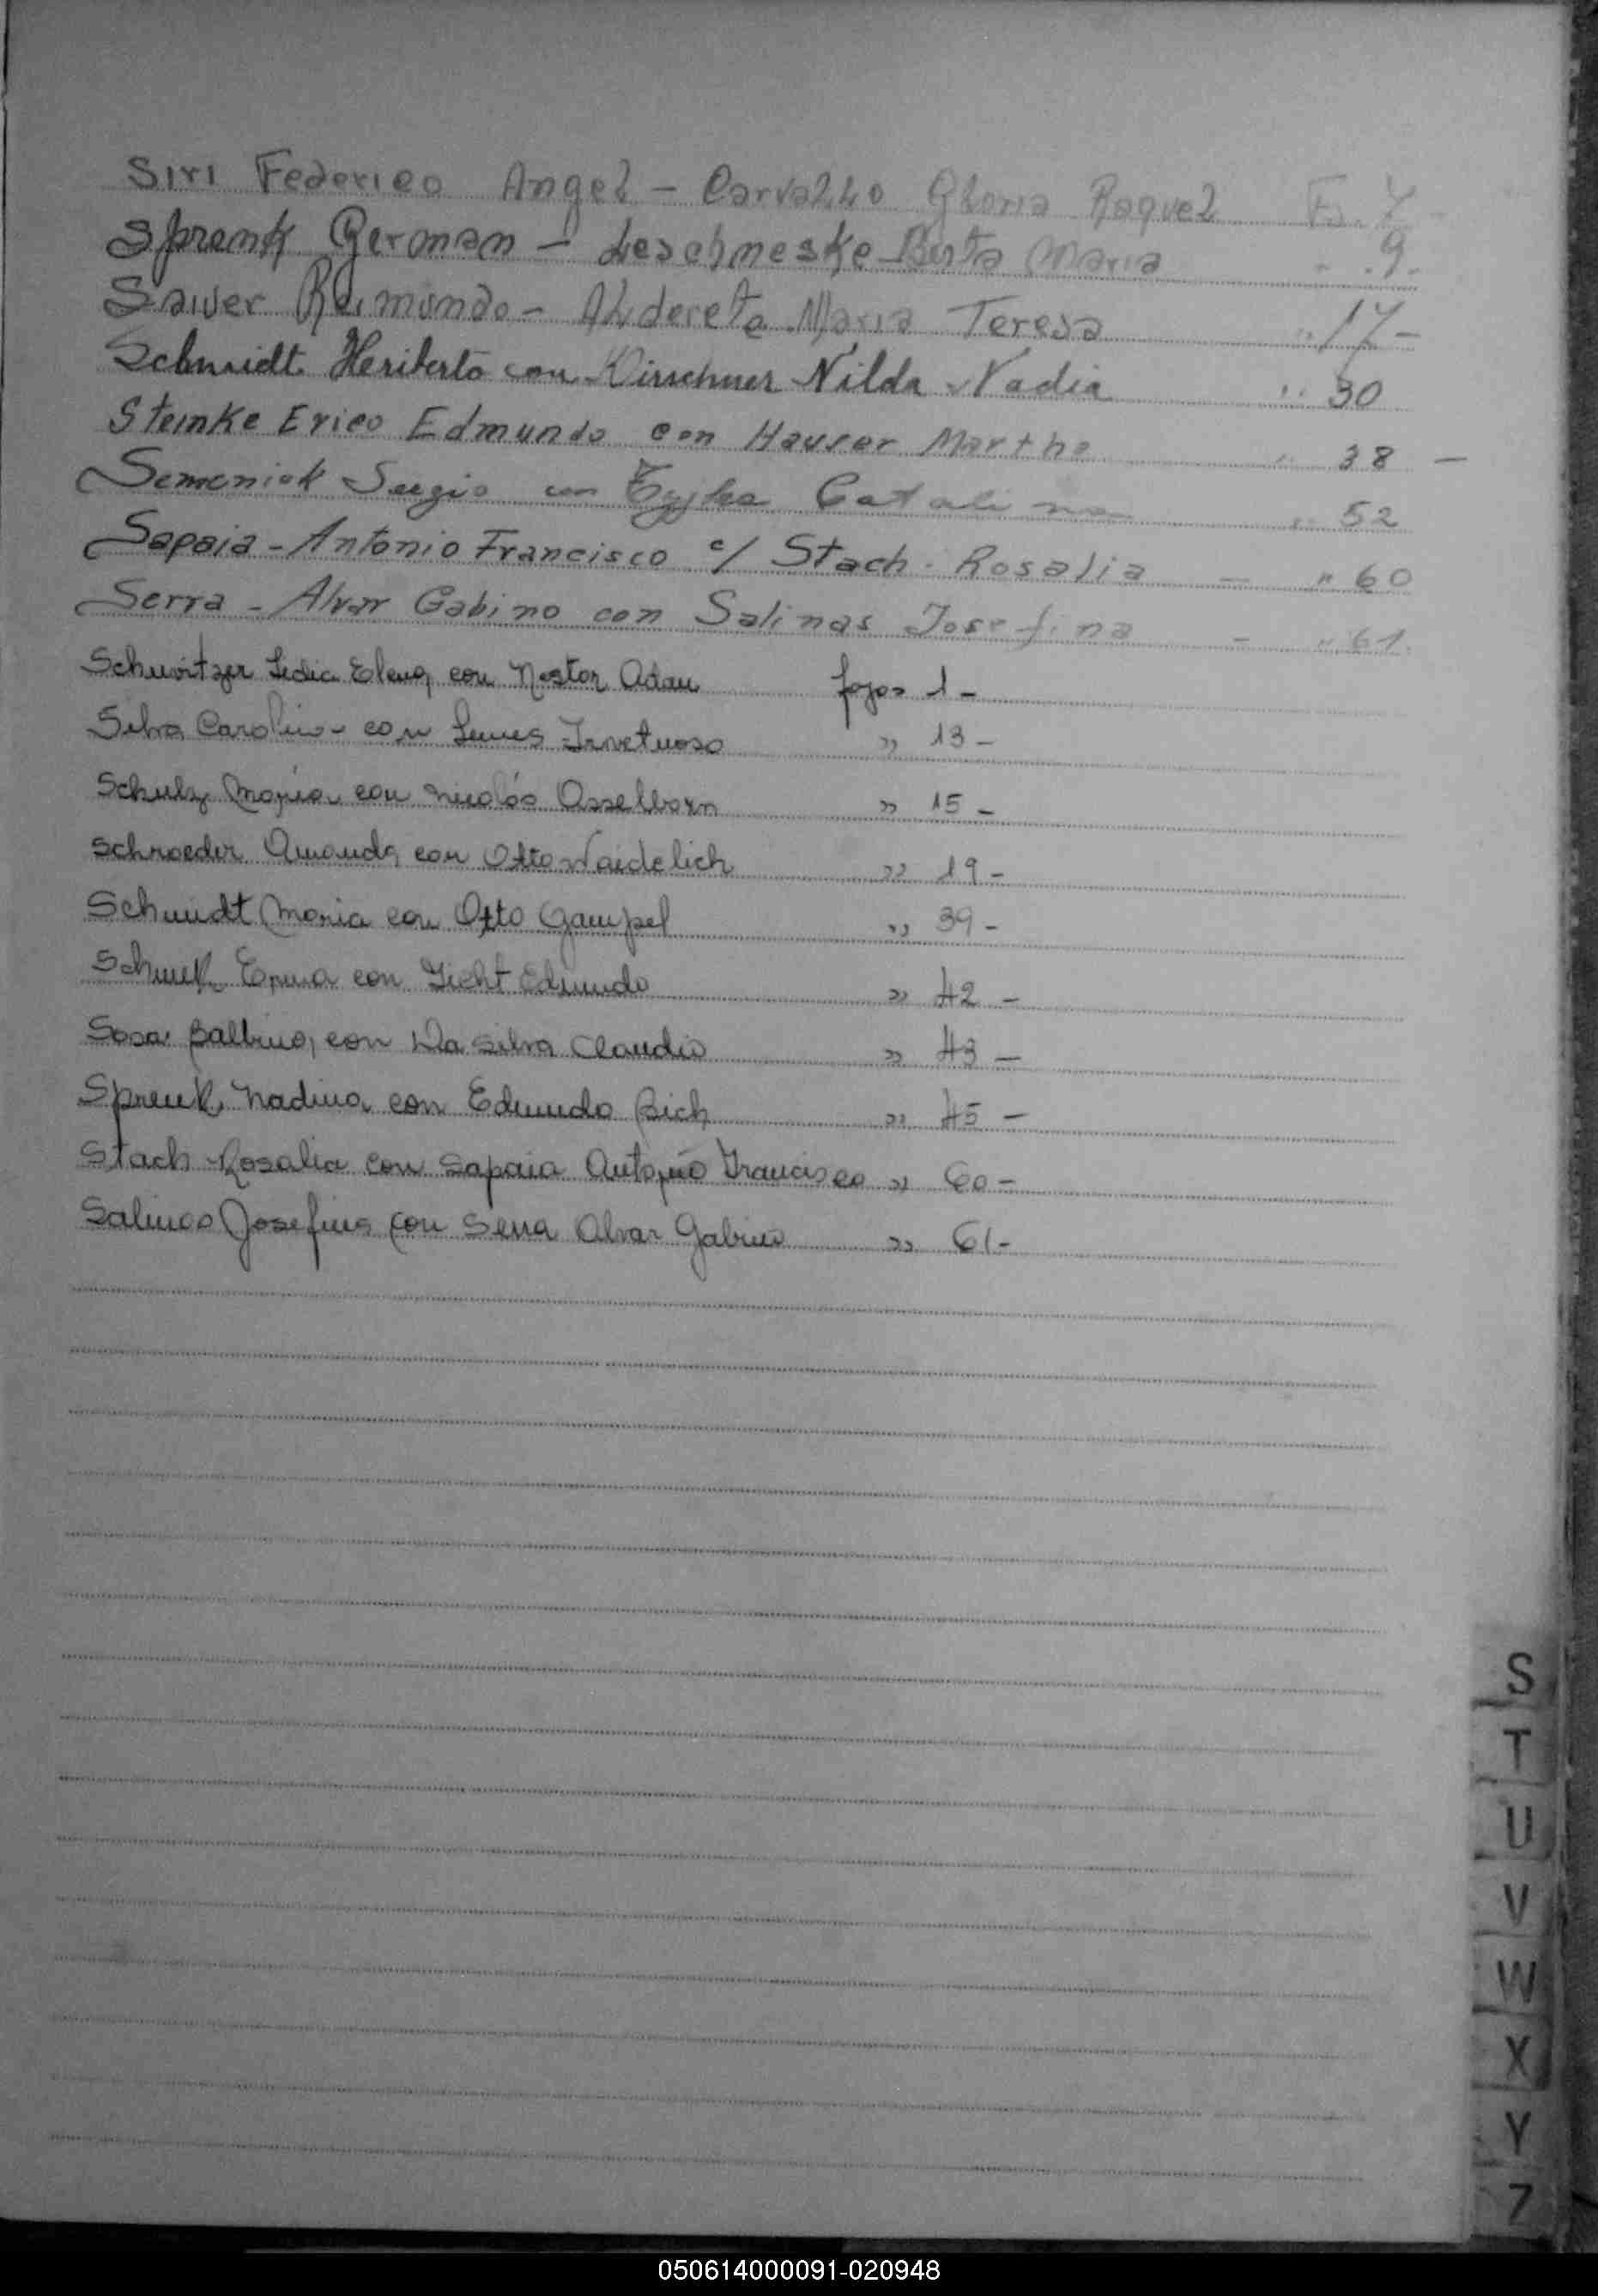 Siri Federico Angel - Carvalho Gloria Raquel Fs. 7 -
Sprenk German - Leschmeske Berta Maria " 9.
Sawer Reimundo - Aldereta Maria Teresa " 17 -
Schmidt Heriberto con Kirschner Nilda Nadia " 30
Steinke Erico Edmundo con Hauser Martha " 38 -
Semeniok Sergio con Catalina " 52
Sapaia - Antonio Francisco c/ Stach - Rosalia - " 60
Serra - Alvar Gabino con Salinas Josefina - " 61.
Schwitzer Ledia Elena, con Nestor Adau fojas 1 -
Silva Carolina - con Lemes " 13 -
Schulz Maria con Nicolás Asselborn " 15 -
Schroeder Amanda con Otto Waidelich " 19 -
Schmidt Maria con Otto Gampel " 39 -
Schunk Erma con Licht Edmundo " 42 -
Sosa Balbina, con Da Silva Claudio " 43 -
Sprenk Nadina con Edmundo Bich " 45 -
Stach Rosalia con Sapaia Antonio Francisco " 60 -
Salinas Josefina con Serra Alvar Gabino " 61 -
S
T
U
V
W
X
Y
Z
050614000091-020948